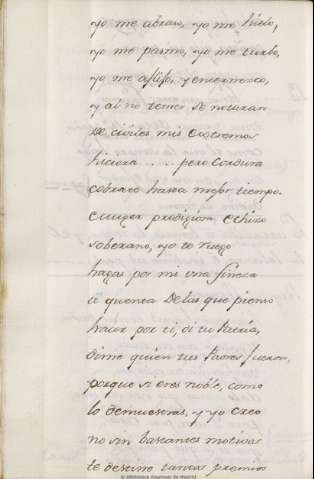 yo me abraso, yo me hielo,
yo me pasmo, yo me turbo,
yo me aflijo, y enternezco,
y al no temer se notaran
de civiles mis extremos
hiciera ..... pero cordura
cobrare hasta mejor tiempo.
Muger prodigiosa, echizo
soberano, yo te ruego
hagas por mi una fineza
a quenta de las que pienso
hacer por ti, di tu Patria,
dime quien tus Padres fueron,
porque si eres noble, como
lo demuestras, y yo creo
no sin bastantes motivos
te destino tantos premios
© Biblioteca Nacional de Madrid